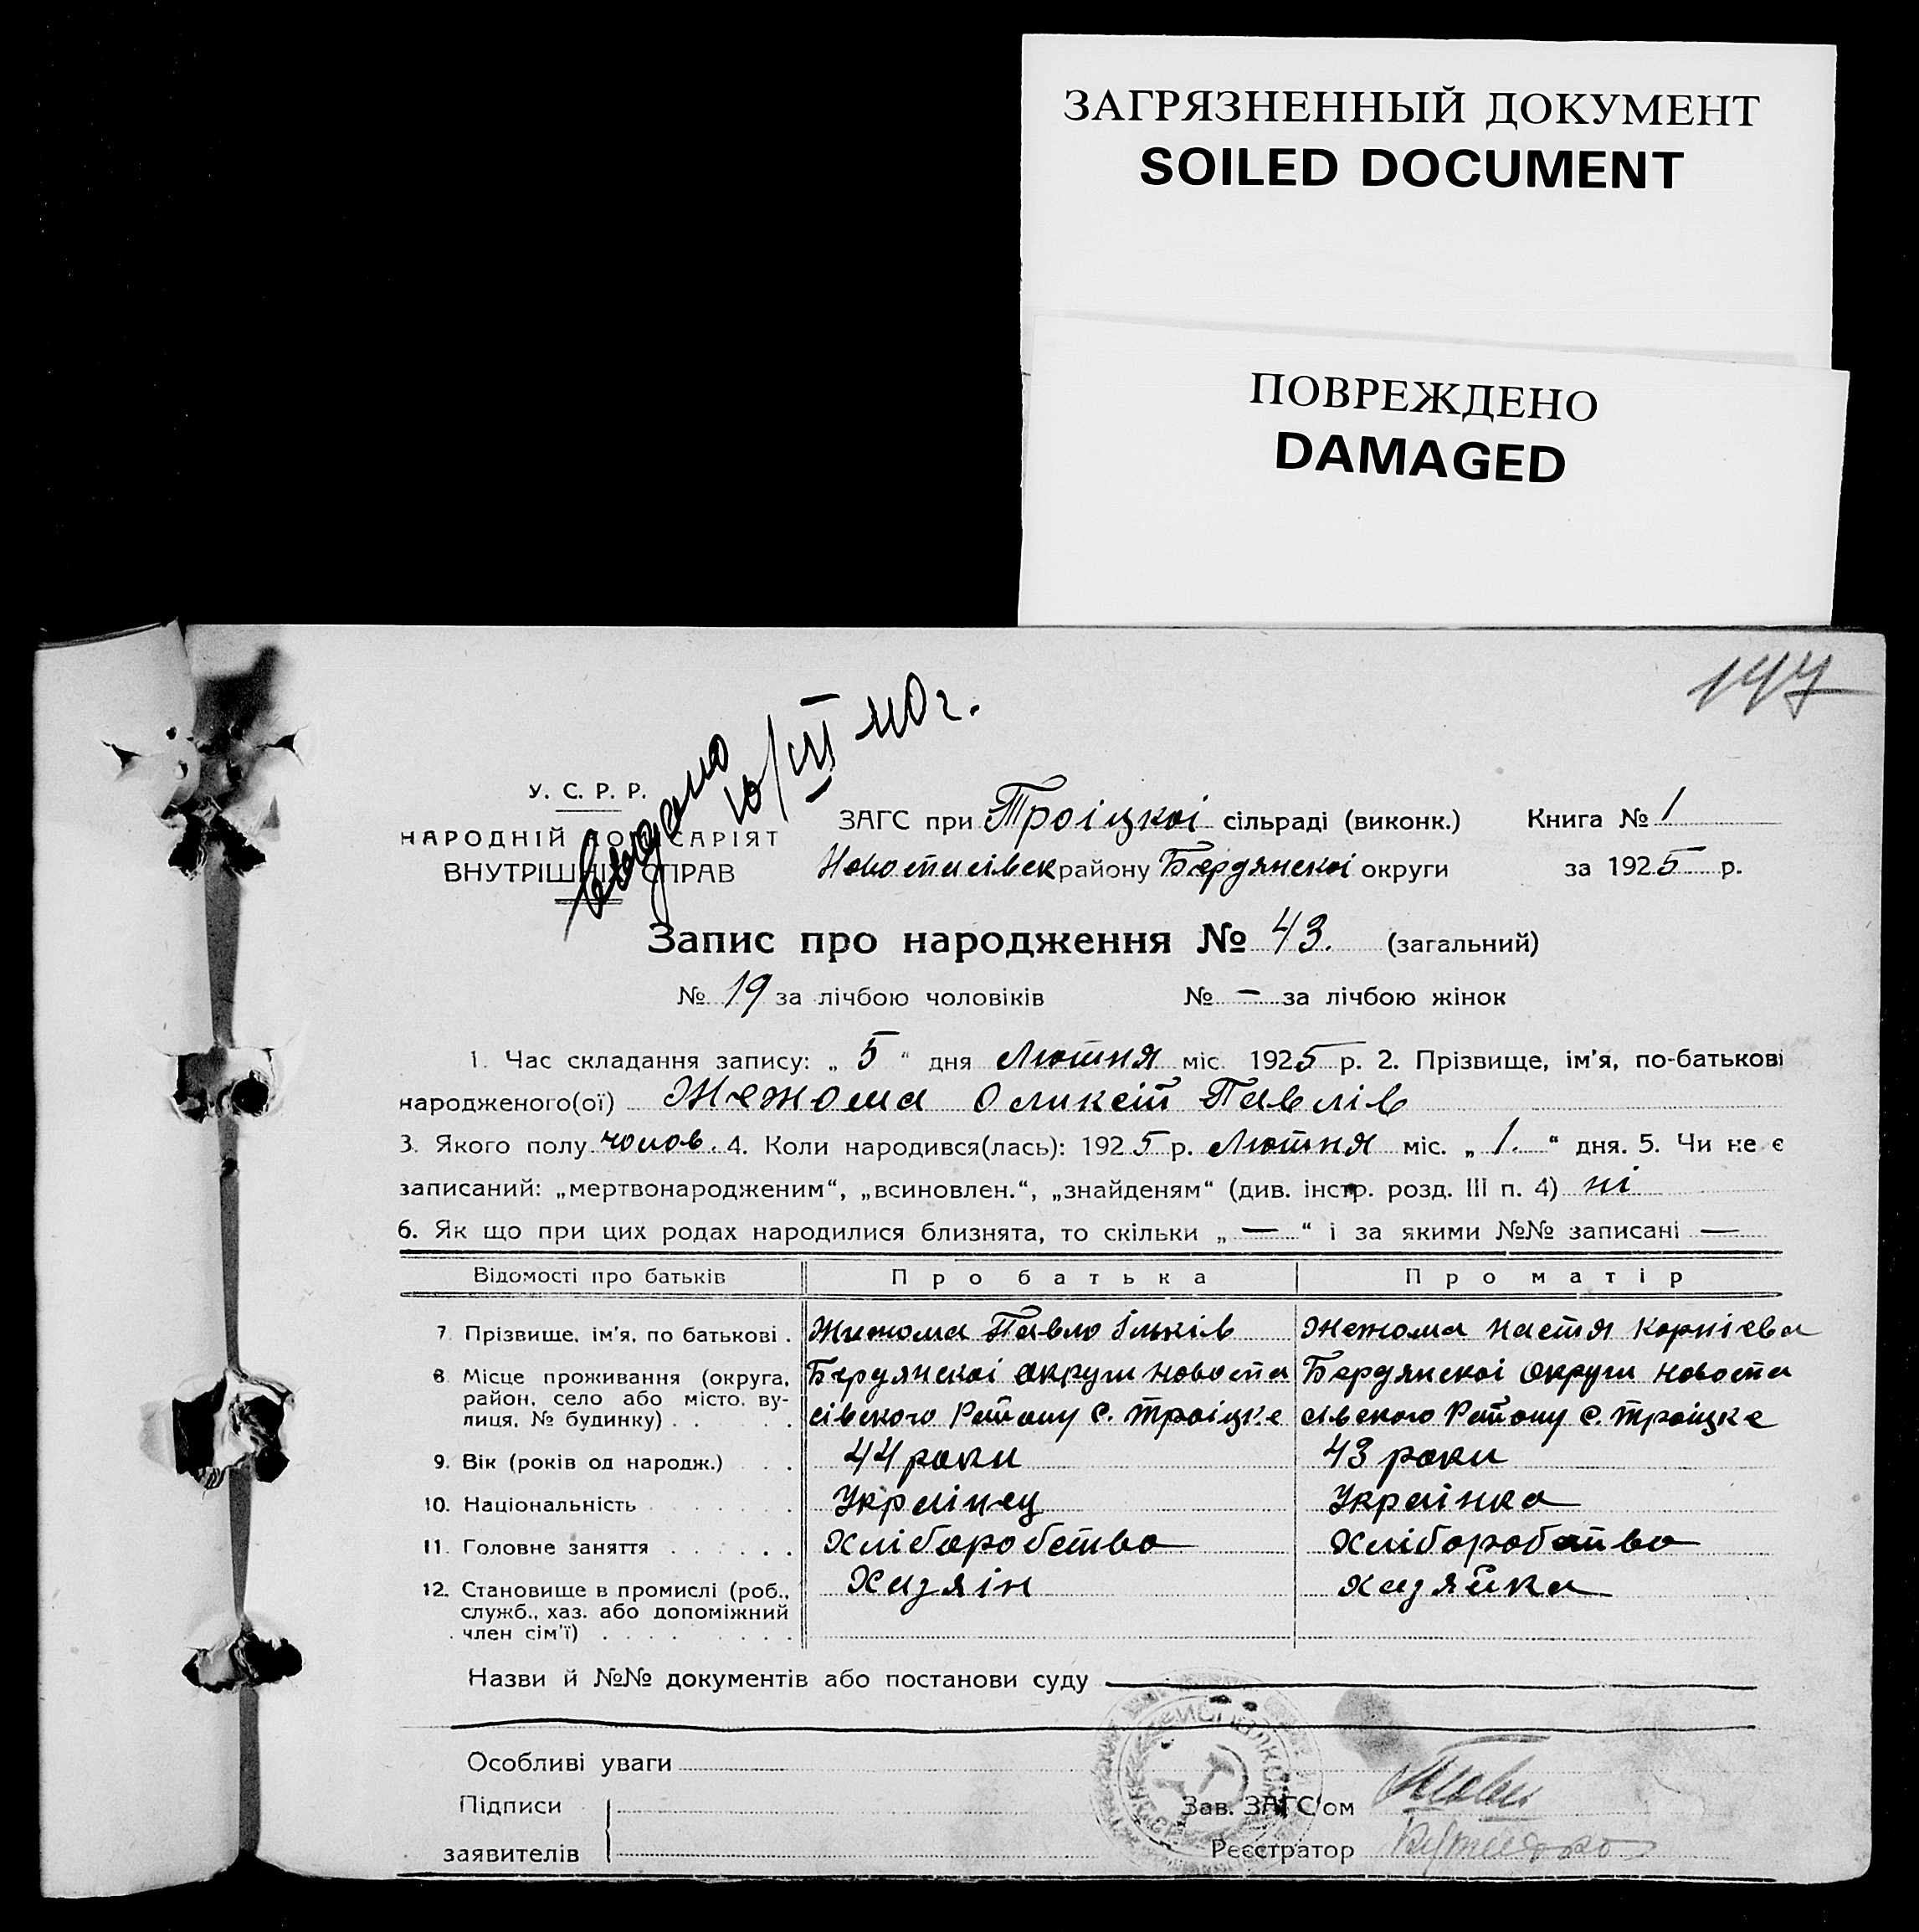 ЗАГРЯЗНЕННЫЙ ДОКУМЕНТ
SOILED DOCUMENT
ПОВРЕЖДЕНО
DAMAGED
147
10/VII 40 г.
У. С. Р. Р.
НАРОДНІЙ КОМІСАРІЯТ
ВНУТРІШНІХ СПРАВ
ЗАГС при Троіцкоі сільраді (виконк.) Книга № 1
Новоспасівск району Бердянскоі округи за 1925 р.
Запис про народження № 43. (загальний)
№ 19 за лічбою чоловіків № — за лічбою жінок
1. Час складання запису: „ 5 “ дня Лютня міс. 1925 р. 2. Прізвище, ім'я, по-батькові
народженого(ої) Жежома Оликсій Павлів
3. Якого полу чолов. 4. Коли народився(лась): 1925 р. Лютня міс. „ 1. “ дня. 5. Чи не є
записаний: „мертвонародженим“, „всиновлен.“, „знайденям“ (див. інстр. розд. III п. 4) ні
6. Як що при цих родах народилися близнята, то скільки „ — “ і за якими №№ записані —
Відомості про батьків Про батька Про матір
7. Прізвище, ім'я, по батькові . Жежома Павло Ільків Жежома Настя Корнієва
8. Місце проживання (округа, Бердянскоі округи Новоспа Бердянскоі округи Новоспа
район, село або місто, ву-
лиця, № будинку) . . . сівского Району С. Троіцке сівского Району С. Троіцке
9. Вік (років од народж.) . . 44 роки 43 роки
10. Національність . . . . Украінец Украінка
11. Головне заняття . . . . . . Хліборобство Хліборобство
12. Становище в промислі (роб., Хазяін хазяйка
служб., хаз. або допоміжний
член сім'ї) . . . . . . . . .
Назви й №№ документів або постанови суду
Особливі уваги
Підписи Зав. ЗАГС'ом
заявителів Реєстратор